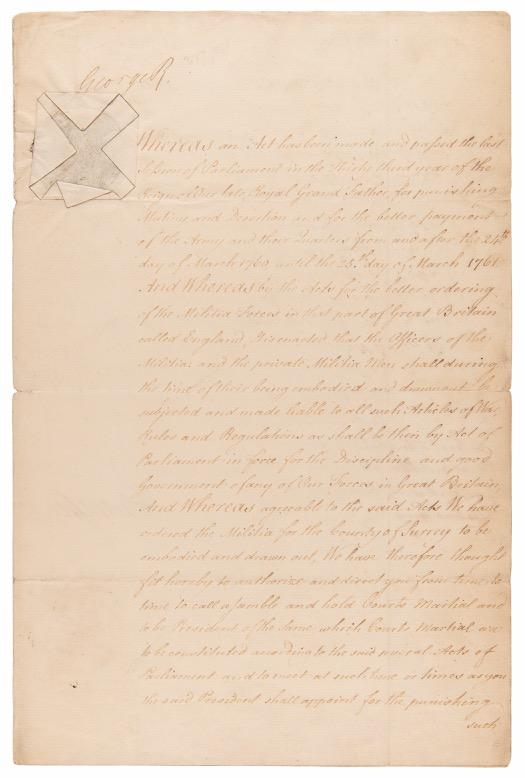 George R.
Whereas an Act has been made and passed the last
Session of Parliament in the Thirty third year of the
Reign of Our late Royal Grand Father for punishing
Mutiny and Desertion and for the better payment
of the Army and their Quarters from and after the 24th
day of March 1760 until the 25th day of March 1761
And Whereas by the Acts for the better ordering
of the Militia Forces in that part of Great Britain
called England, It is enacted that the Officers of the
Militia and the private Militia Men shall during
the time of their being embodied and drawn out be
subjected and made liable to all such Articles of War,
Rules and Regulations as shall be then by Act of
Parliament in force for the Discipline and good
Government of any of Our Forces in Great Britain
And Whereas agreable to the said Acts We have
ordered the Militia for the County of Surrey to be
embodied and drawn out, We have therefore thought
fit hereby to authorize and direct you from time to
time to call assemble and hold Courts Martial and
to be President of the same which Courts Martial are
to be constituted according to the said several Acts of
Parliament and to meet at such time or times as you
the said President shall appoint for the punishing
such